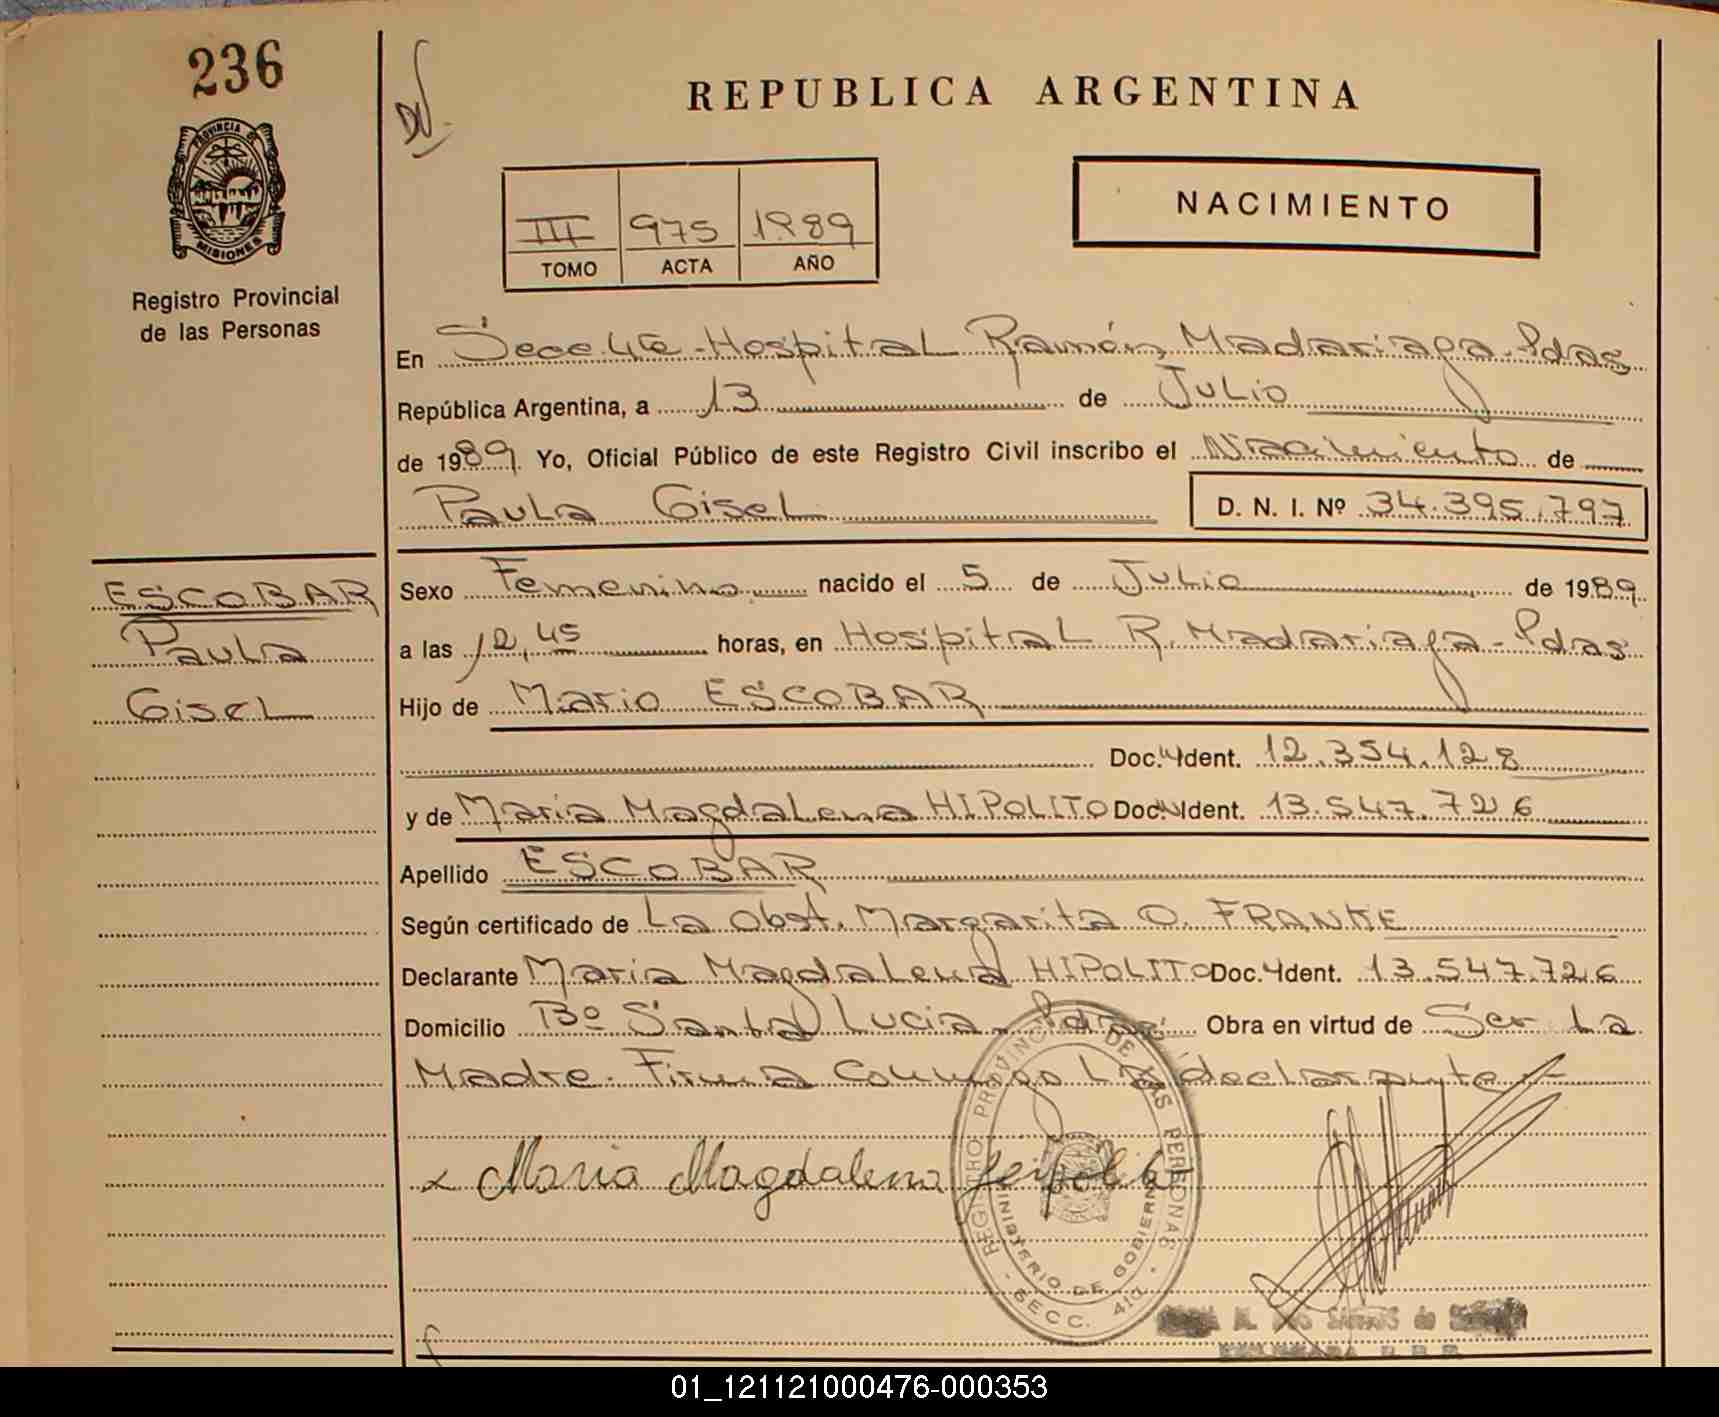 236
PROVINCIA DE
MISIONES
Registro Provincial
de las Personas
REPUBLICA ARGENTINA
III 975 1989
TOMO ACTA AÑO
NACIMIENTO
En Secc 4ta - Hospital Ramón Madariaga - Pdas
República Argentina, a 13 de Julio
de 1989. Yo, Oficial Público de este Registro Civil inscribo el Nacimiento de
Paula Gisel D. N. I. Nº 34.395.797
ESCOBAR
Paula
Gisel
Sexo Femenino nacido el 5 de Julio de 1989
a las 12,45 horas, en Hospital R. Madariaga - Pdas
Hijo de Mario ESCOBAR
Doc. Ident. 12.354.128
y de Maria Magdalena HIPOLITO Doc. Ident. 13.547.726
Apellido ESCOBAR
Según certificado de La Obst. Margarita O. FRANKE
Declarante Maria Magdalena HIPOLITO Doc. Ident. 13.547.726
Domicilio Bº Santa Lucia - Pdas Obra en virtud de Ser La
Madre. Firma Conmigo La declarante
x Maria Magdalena
REGISTRO PROVINCIAL DE LAS PERSONAS
MINISTERIO DE GOBIERNO
- SECC. 4ta -
01_121121000476-000353